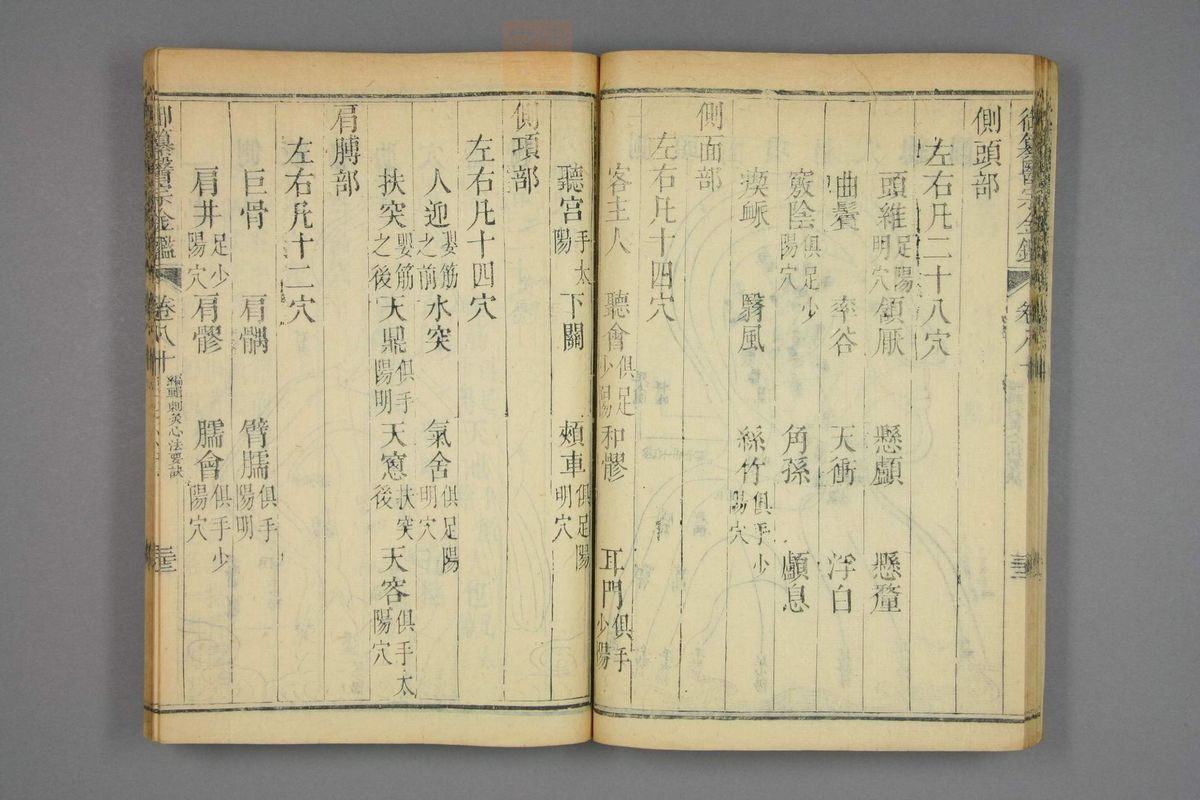 御纂醫宗金鑑 卷八十
側頭部
左右凡二十八穴
頭維足陽明穴 頷厭 懸顱 懸釐
曲鬢 率谷 天衝 浮白
竅陰俱足少陽穴 角孫 顱息
瘈脈 翳風 絲竹俱手少陽穴
側面部
左右凡十四穴
客主人 聽會俱足少陽 和髎 耳門俱手少陽
聽宮手太陽 下關 頰車俱足陽明穴
側項部
左右凡十四穴
人迎嬰筋之前 水突 氣舍俱足陽明穴
扶突嬰筋之後 天鼎俱手陽明 天窻扶突後 天容俱手太陽穴
肩膊部
左右凡十二穴
巨骨 肩髃 臂臑俱手陽明
肩井足少陽穴 肩髎 臑會俱手少陽穴
御纂醫宗金鑑 卷八十 編輯刺灸心法要訣